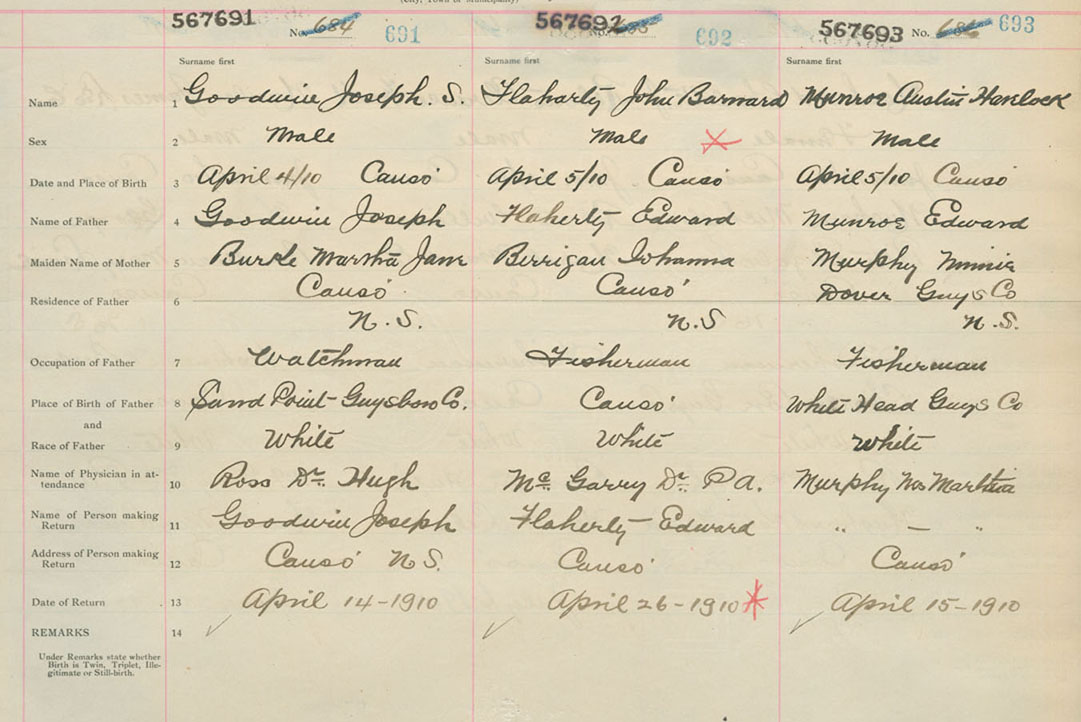 567691 567692 567693
No. 684 691 No. 692 No. 693
Surname first Surname first Surname first
Name 1 Goodwin Joseph. S. Flaharty John Barnard Munroe Austin Havelock
Sex 2 Male Male Male
Date and Place of Birth 3 April 4/10 Canso April 5/10 Canso April 5/10 Canso
Name of Father 4 Goodwin Joseph Flaherty Edward Munroe Edward
Maiden Name of Mother 5 Burke Martha Jane Berrigan Johanna Murphy Minnie
Residence of Father 6 Canso Canso Dover Guys Co
N.S. N.S N.S.
Occupation of Father 7 Watchman Fisherman Fisherman
Place of Birth of Father 8 Sand Point Guysboro Co. Canso White Head Guys Co
and
Race of Father 9 White White White
Name of Physician in at-
tendance 10 Ross Dr. Hugh Mc Garry Dr. P A. Murphy Mrs Martha
Name of Person making
Return 11 Goodwin Joseph Flaherty Edward " — "
Address of Person making
Return 12 Canso N S. Canso Canso
Date of Return 13 April 14-1910 April 26-1910 April 15-1910
REMARKS 14
Under Remarks state whether
Birth is Twin, Triplet, Ille-
gitimate or Still-birth.